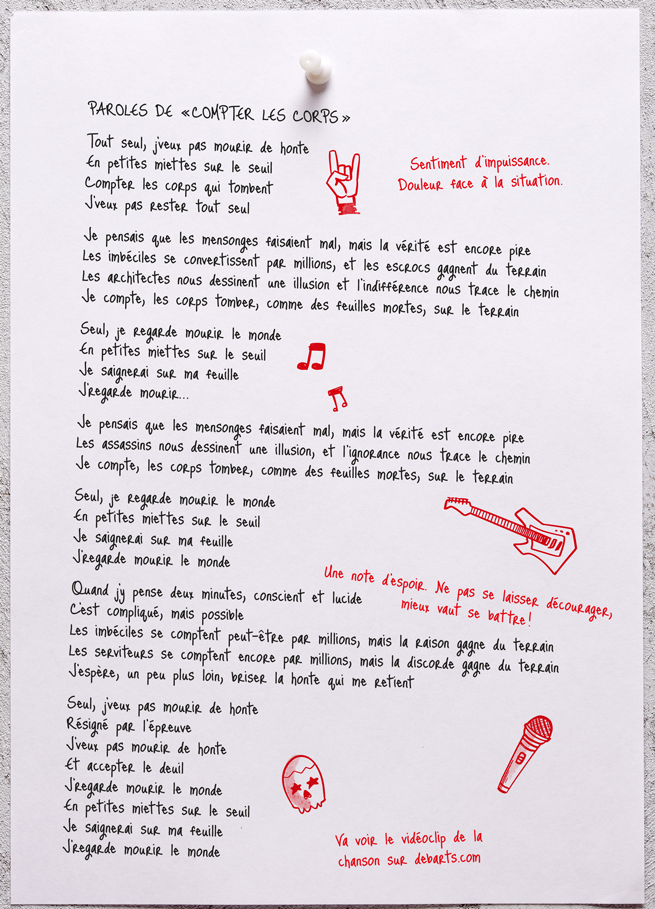 PAROLES DE «COMPTER LES CORPS»
Tout seul, j'veux pas mourir de honte
En petites miettes sur le seuil
Compter les corps qui tombent
J'veux pas rester tout seul
Sentiment d'impuissance.
Douleur face à la situation.
Je pensais que les mensonges faisaient mal, mais la vérité est encore pire
Les imbéciles se convertissent par millions, et les escrocs gagnent du terrain
Les architectes nous dessinent une illusion et l'indifférence nous trace le chemin
Je compte, les corps tomber, comme des feuilles mortes, sur le terrain
Seul, je regarde mourir le monde
En petites miettes sur le seuil
Je saignerai sur ma feuille
J'regarde mourir...
Je pensais que les mensonges faisaient mal, mais la vérité est encore pire
Les assassins nous dessinent une illusion, et l'ignorance nous trace le chemin
Je compte, les corps tomber, comme des feuilles mortes, sur le terrain
Seul, je regarde mourir le monde
En petites miettes sur le seuil
Je saignerai sur ma feuille
J'regarde mourir le monde
Une note d'espoir. Ne pas se laisser décourager,
mieux vaut se battre!
Quand j'y pense deux minutes, conscient et lucide
C'est compliqué, mais possible
Les imbéciles se comptent peut-être par millions, mais la raison gagne du terrain
Les serviteurs se comptent encore par millions, mais la discorde gagne du terrain
J'espère, un peu plus loin, briser la honte qui me retient
Seul, j'veux pas mourir de honte
Résigné par l'épreuve
J'veux pas mourir de honte
Et accepter le deuil
J'regarde mourir le monde
En petites miettes sur le seuil
Je saignerai sur ma feuille
J'regarde mourir le monde
Va voir le vidéoclip de la
chanson sur debarts.com